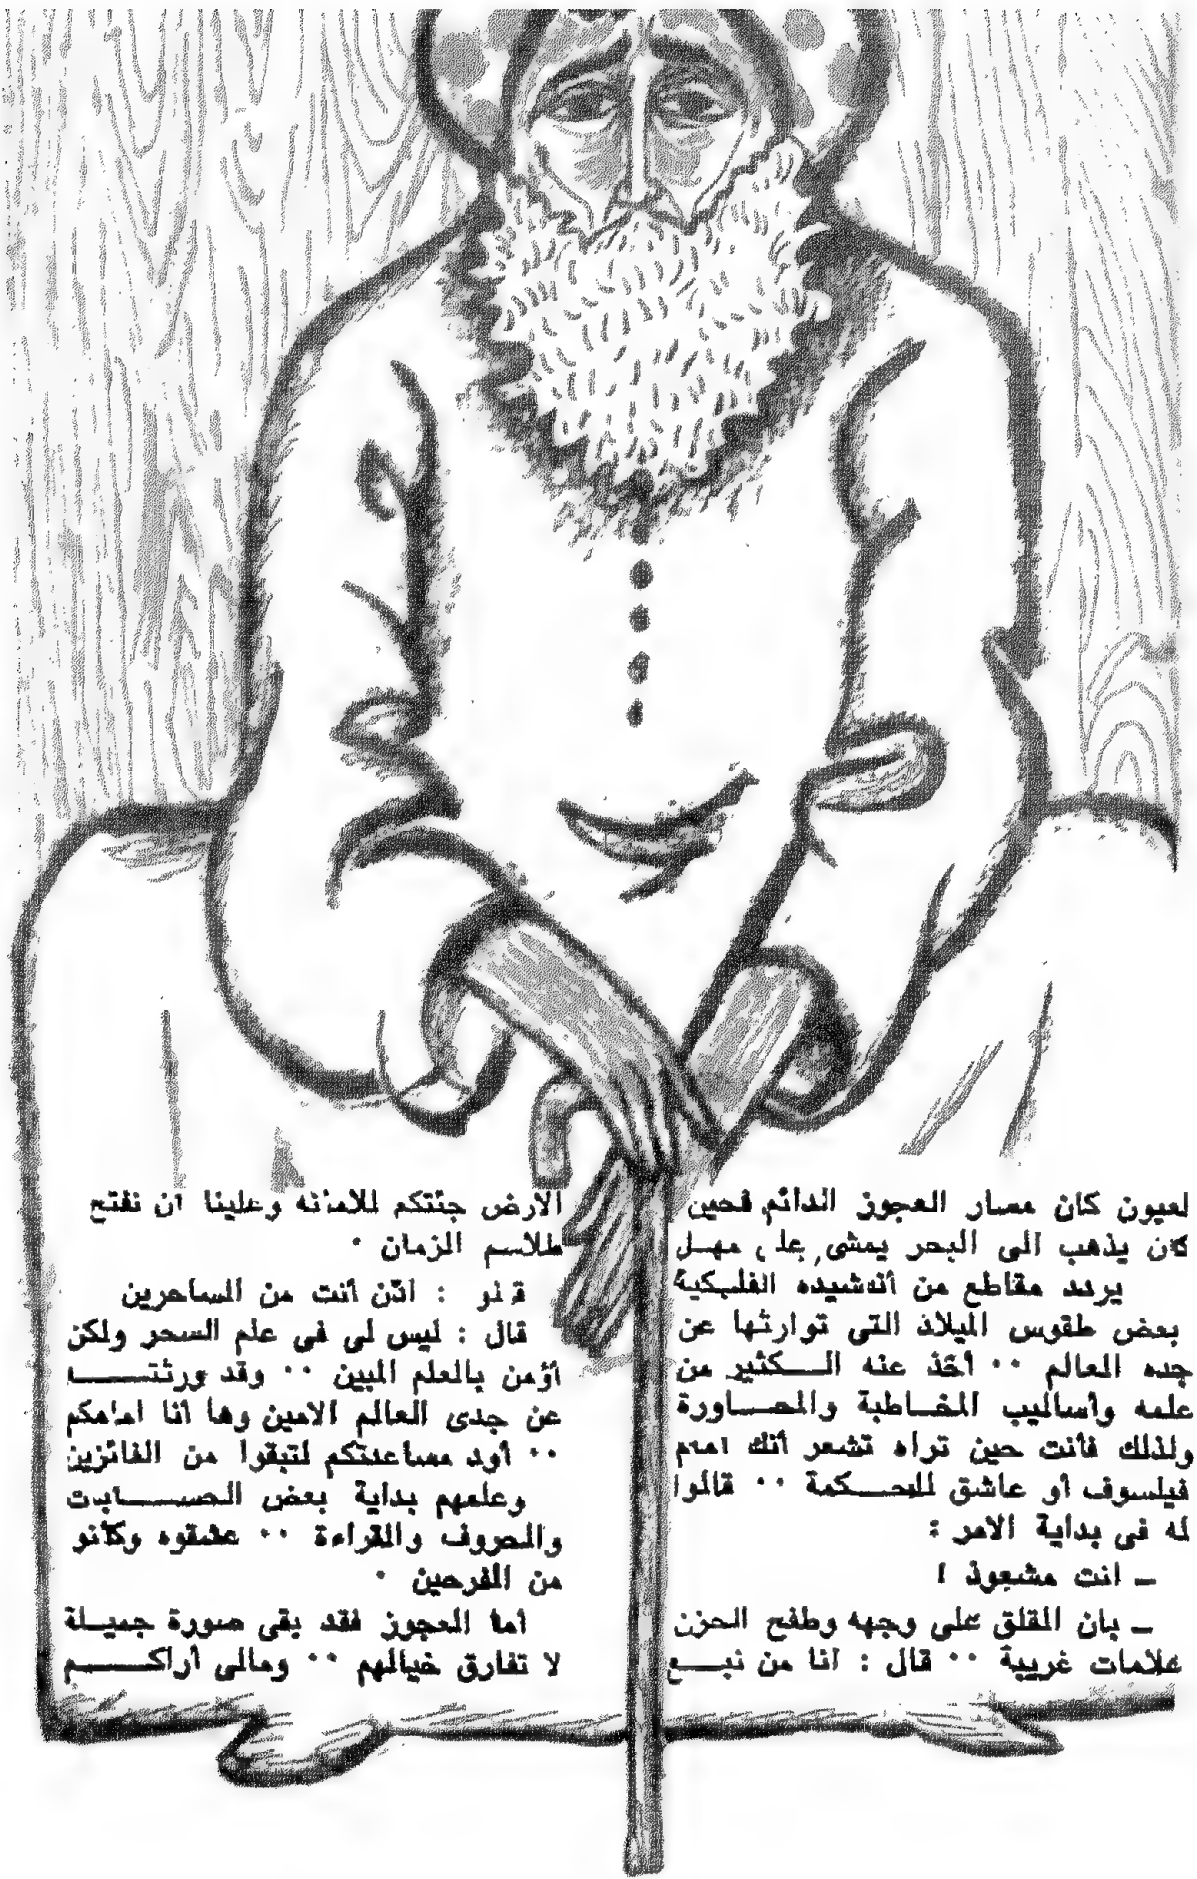 لعيون كان مسار العجوز الدائم فحين
كان يذهب الى البحر يمشى على مهـل
يردد مقاطع من أنشيده الفلـكية
بعض طقوس الميلاد التى توارثها عن
جده العالم ٠٠ أخذ عنه الــكثير من
علمه وأساليب المخـاطبة والمحــاورة
ولذلك فأنت حين تراه تشعر أنك امام
فيلسوف أو عاشق للحــكمة ٠٠ قالوا
له فى بداية الامر :
ـ انت مشعوذ !
ـ بان القلق على وجهه وطفح الحزن
علامات غريبة ٠٠ قال : انا من نبــع
الارض جئتكم للامانه وعلينا ان نفتح
طلاسم الزمان ٠
: اذن أنت من الساحرين
قال : ليس لى فى علم السحر ولكن
أؤمن بالعلم المبين ٠٠ وقد ورثتــــه
عن جدى العالم الامين وها أنا امامكم
٠٠ أود مساعدتكم لتبقوا من الفائزين
وعلمهم بداية بعض الحســـابات
والحروف والقراءة ٠٠ عشقوه وكانو
من الفرحين ٠
أما العجوز فقد بقى صورة جميـلة
لا تفارق خيالهم ٠٠ ومالى أراكـــم